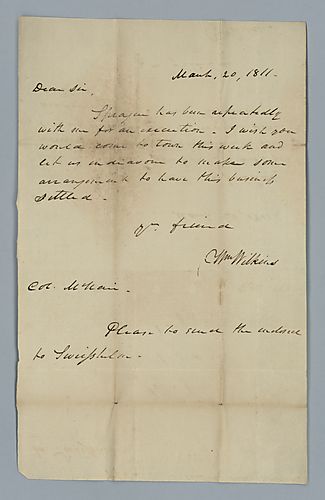 March, 20, 1811.
Dear Sir,
Sprague has been repeatedly
with me for an execution. I wish you
would come to town this week and
let us endeavour to make some
arrangement to have this business
settled.
Yr. friend
Wm Wilkins
Col. McNair.
Please to send the enclosed
to